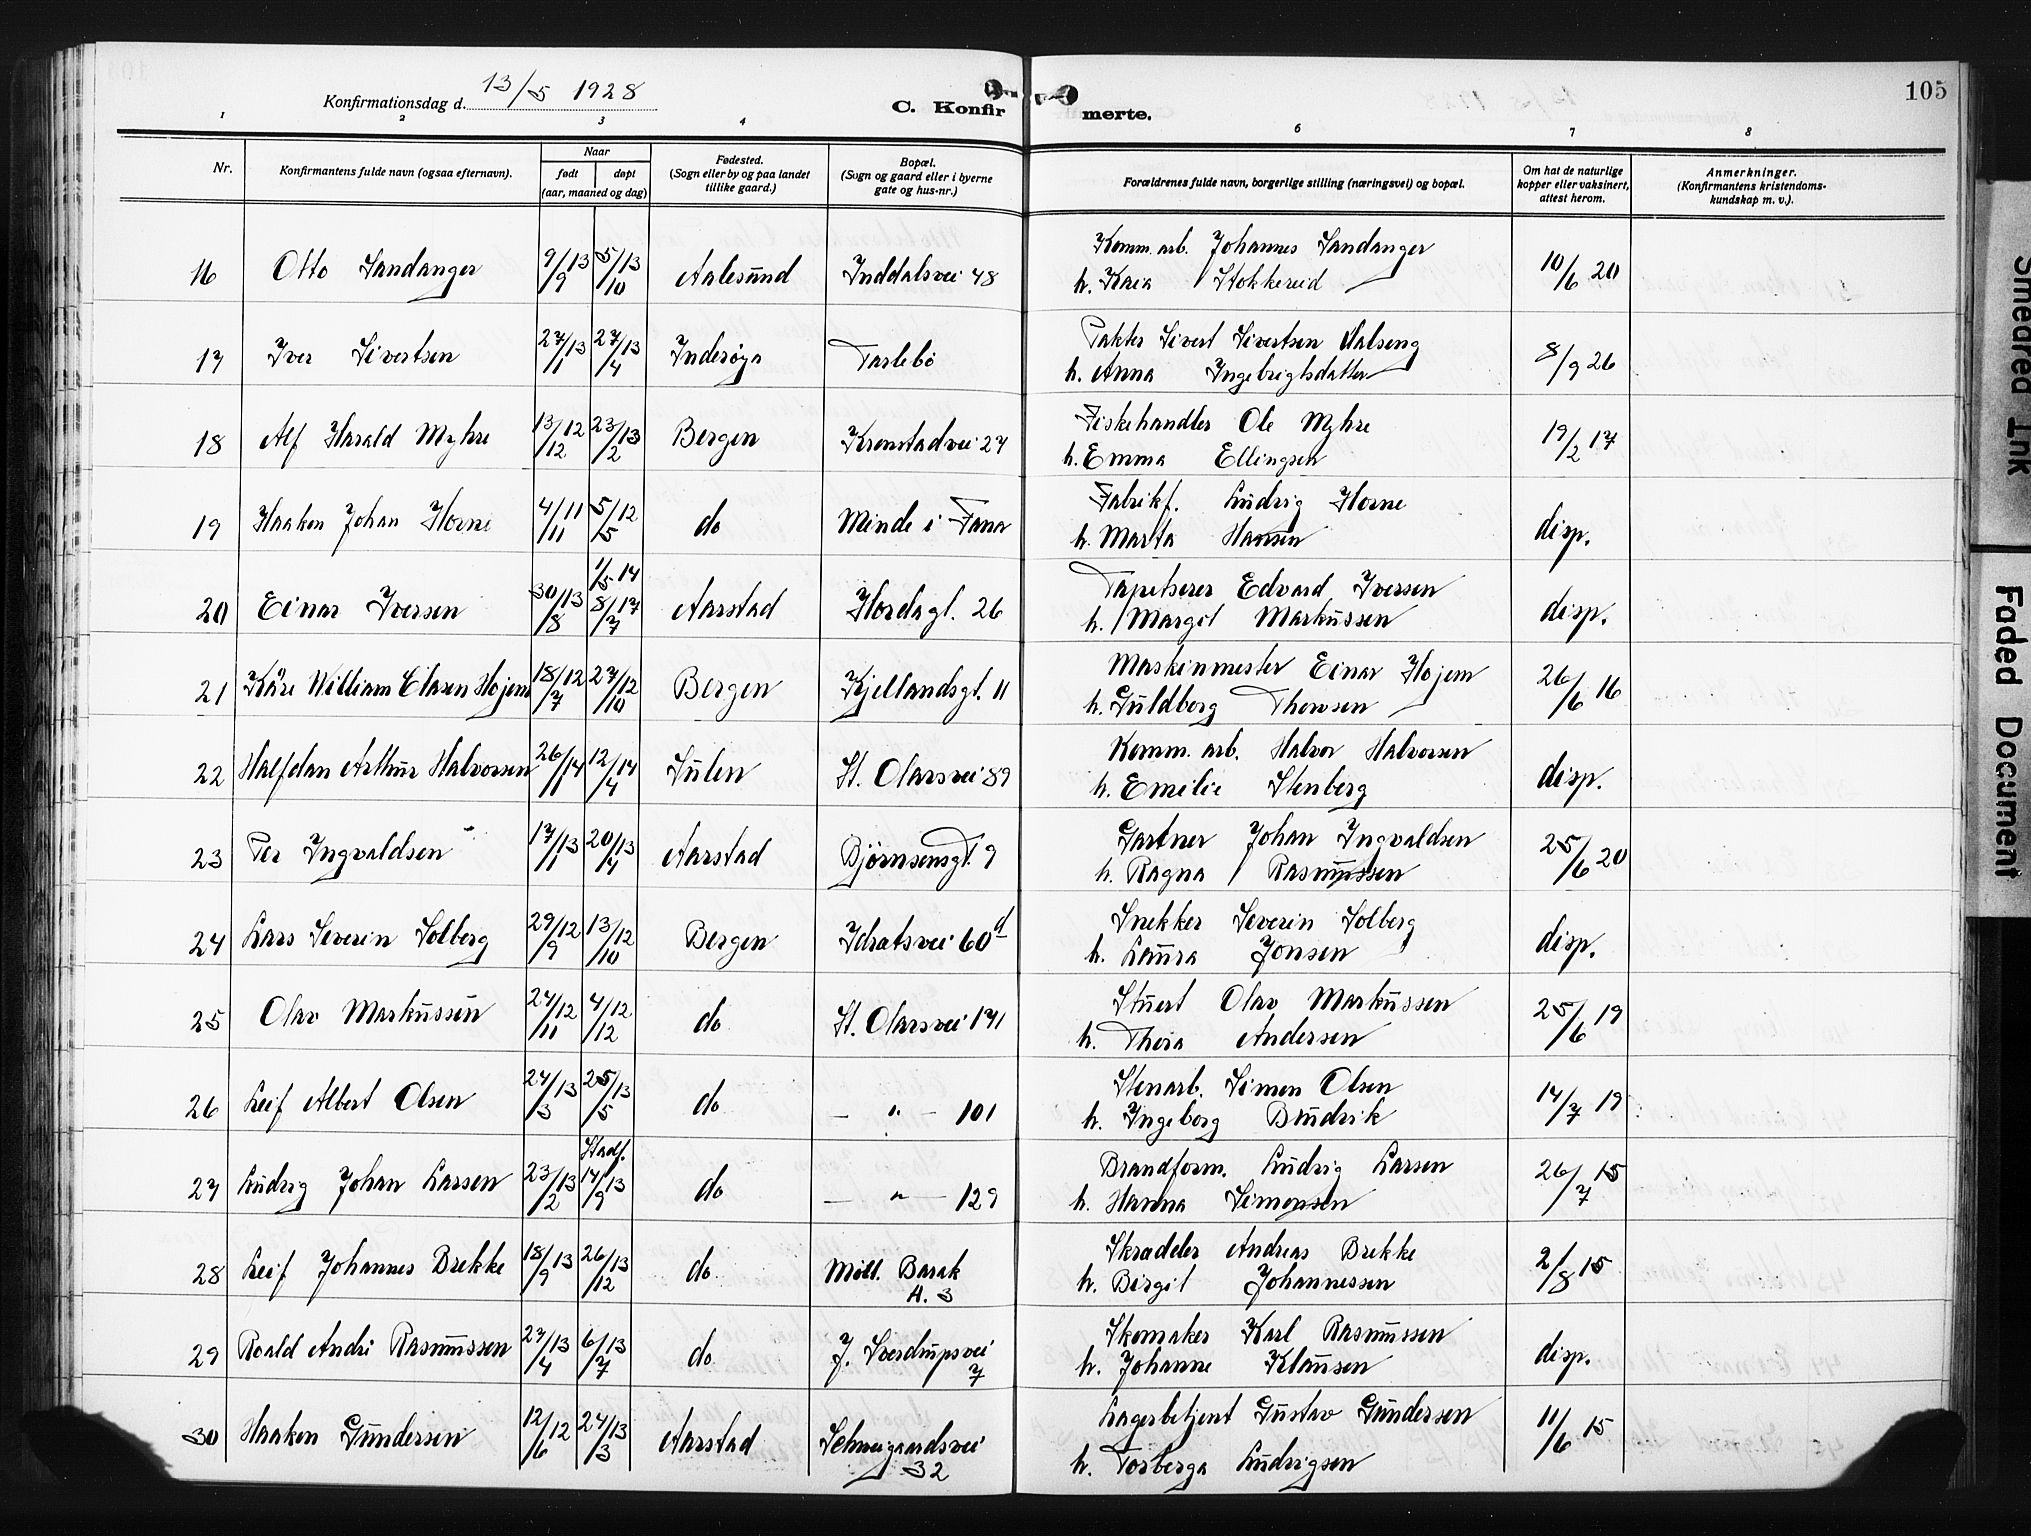 Konfirmationsdag d. 13/5 1928
C. Konfirmerte.
105
1 2 3 4 6 7 8
Nr.
Konfirmantens fulde navn (ogsaa efternavn).
Naar
født
døpt
(aar, maaned og dag)
Fødested.
(Sogn eller by og paa landet
tillike gaard.)
Bopæl.
(Sogn og gaard eller i byerne
gate og hus-nr.)
Forældrenes fulde navn, borgerlige stilling (næringsvei) og bopæl.
Om hat de naturlige
kopper eller vaksinert,
attest herom.
Anmerkninger.
(Konfirmantens kristendoms-
kundskap m. v.).
16 Otto Sandanger 9/9 13 5/10 13 Aalesund Inddalsvei 48 Komm. arb. Johannes Sandanger
h. Kaia Stokkereid 10/6 20
17 Iver Sivertsen 27/1 13 27/4 13 Inderøya Tarlebø Pakter Sivert Sivertsen Valseng
h. Anna Ingebrigtsdatter 8/9 26
18 Alf Harald Myhre 13/12 12 23/2 13 Bergen Kronstadvei 27 Fiskehandler Ole Myhre
h. Emma Ellingsen 19/2 17
19 Haaken Johan Horne 4/11 11 5/5 12 do Minde i Fana Fabrikf. Ludvig Horne
h. Marta Hansen disp.
20 Einar Iversen 30/8 13 1/5 14 8/7 17 Aarstad Hordagt. 26 Tapetserer Edvard Iversen
h. Margit Markussen disp.
21 Kåre William Elasen Hojem 18/7 12 27/10 12 Bergen Kjellandsgt. 11 Maskinmester Einar Hojem
h. Guldborg Thowsen 26/6 16
22 Halfdan Arthur Halvorsen 26/11 14 12/4 14 Sulen St. Olavsvei 89 Komm. arb. Halvor Halvorsen
h. Emilie Stenberg disp.
23 Per Ingvaldsen 17/1 13 20/4 13 Aarstad Bjørnsensgt. 9 Gartner Johan Ingvaldsen
h. Ragna Rasmussen 25/6 20
24 Lars Severin Solberg 29/9 12 13/10 12 Bergen Idratsvei 60d Snekker Severin Solberg
h. Laura Jonsen disp.
25 Olav Markussen 27/11 12 4/12 12 do St. Olavsvei 171 Stuert Olav Markussen
h. Thora Andersen 25/6 19
26 Leif Albert Olsen 27/3 13 25/5 13 do — " — 101 Stenarb. Simon Olsen
h. Ingeborg Budvik 17/7 19
27 Ludvig Johan Larsen 23/2 13 Stadf. 14/9 13 do — " — 129 Brandform. Ludvig Larsen
h. Hanna Simonsen 26/7 15
28 Leif Johannes Brekke 18/9 13 26/12 13 do Møll. Barak
H. 3 Skradder Andreas Brekke
h. Birgit Johannessen 2/8 15
29 Roald Andri Rasmussen 27/4 13 6/7 13 do J. Sverdrupsvei
7 Skomaker Karl Rasmussen
h. Johanne Klausen disp.
30 Haaken Gundersen 12/6 12 24/3 13 Aarstad Schweigaardsvei
32 Lagerbetjent Gustav Gundersen
h. Torberga Ludvigsen 11/6 15
Smeared Ink
Faded Document